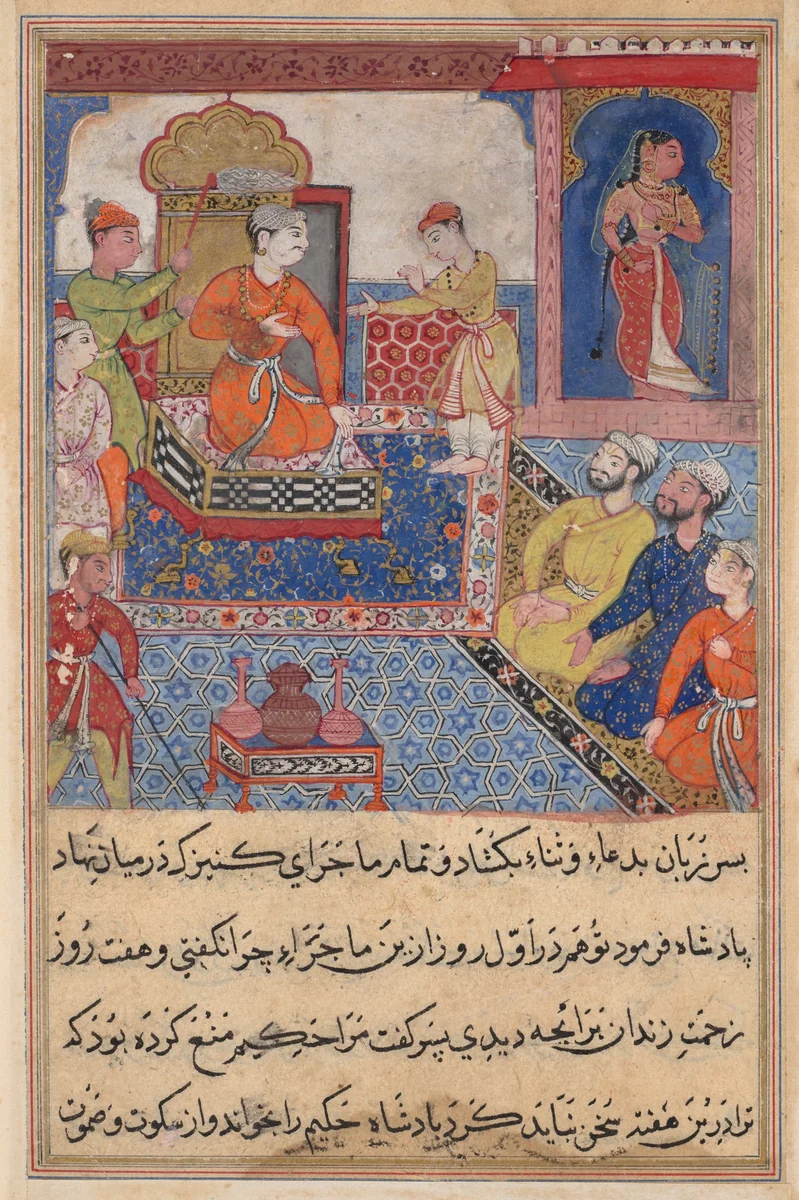 پسر زبان بدعاء و ثناء بکشاد و تمام ماجرای کنیزک در میان نهاد
پادشاه فرمود تو هم در اول روز ازین ماجراء چرا نکفتی و هفت روز
زحمت زندان برانجه دیدی پسر کفت مرا حکیم منع کرده بود که
ترا درین هفته سخن نباید کرد پادشاه حکیم را بخواند و از سکوت و صموت